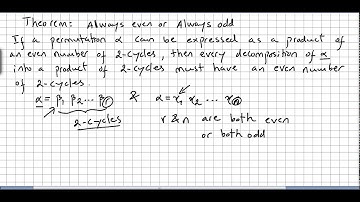 Theorem: Always even or Always odd
If a permutation α can be expressed as a product of
an even number of 2-cycles, then every decomposition of α
into a product of 2-cycles must have an even number
of 2-cycles.
α = β₁ β₂ ... βᵣ & α = γ₁ γ₂ ... γₙ
2-cycles r & n are both even
or both odd